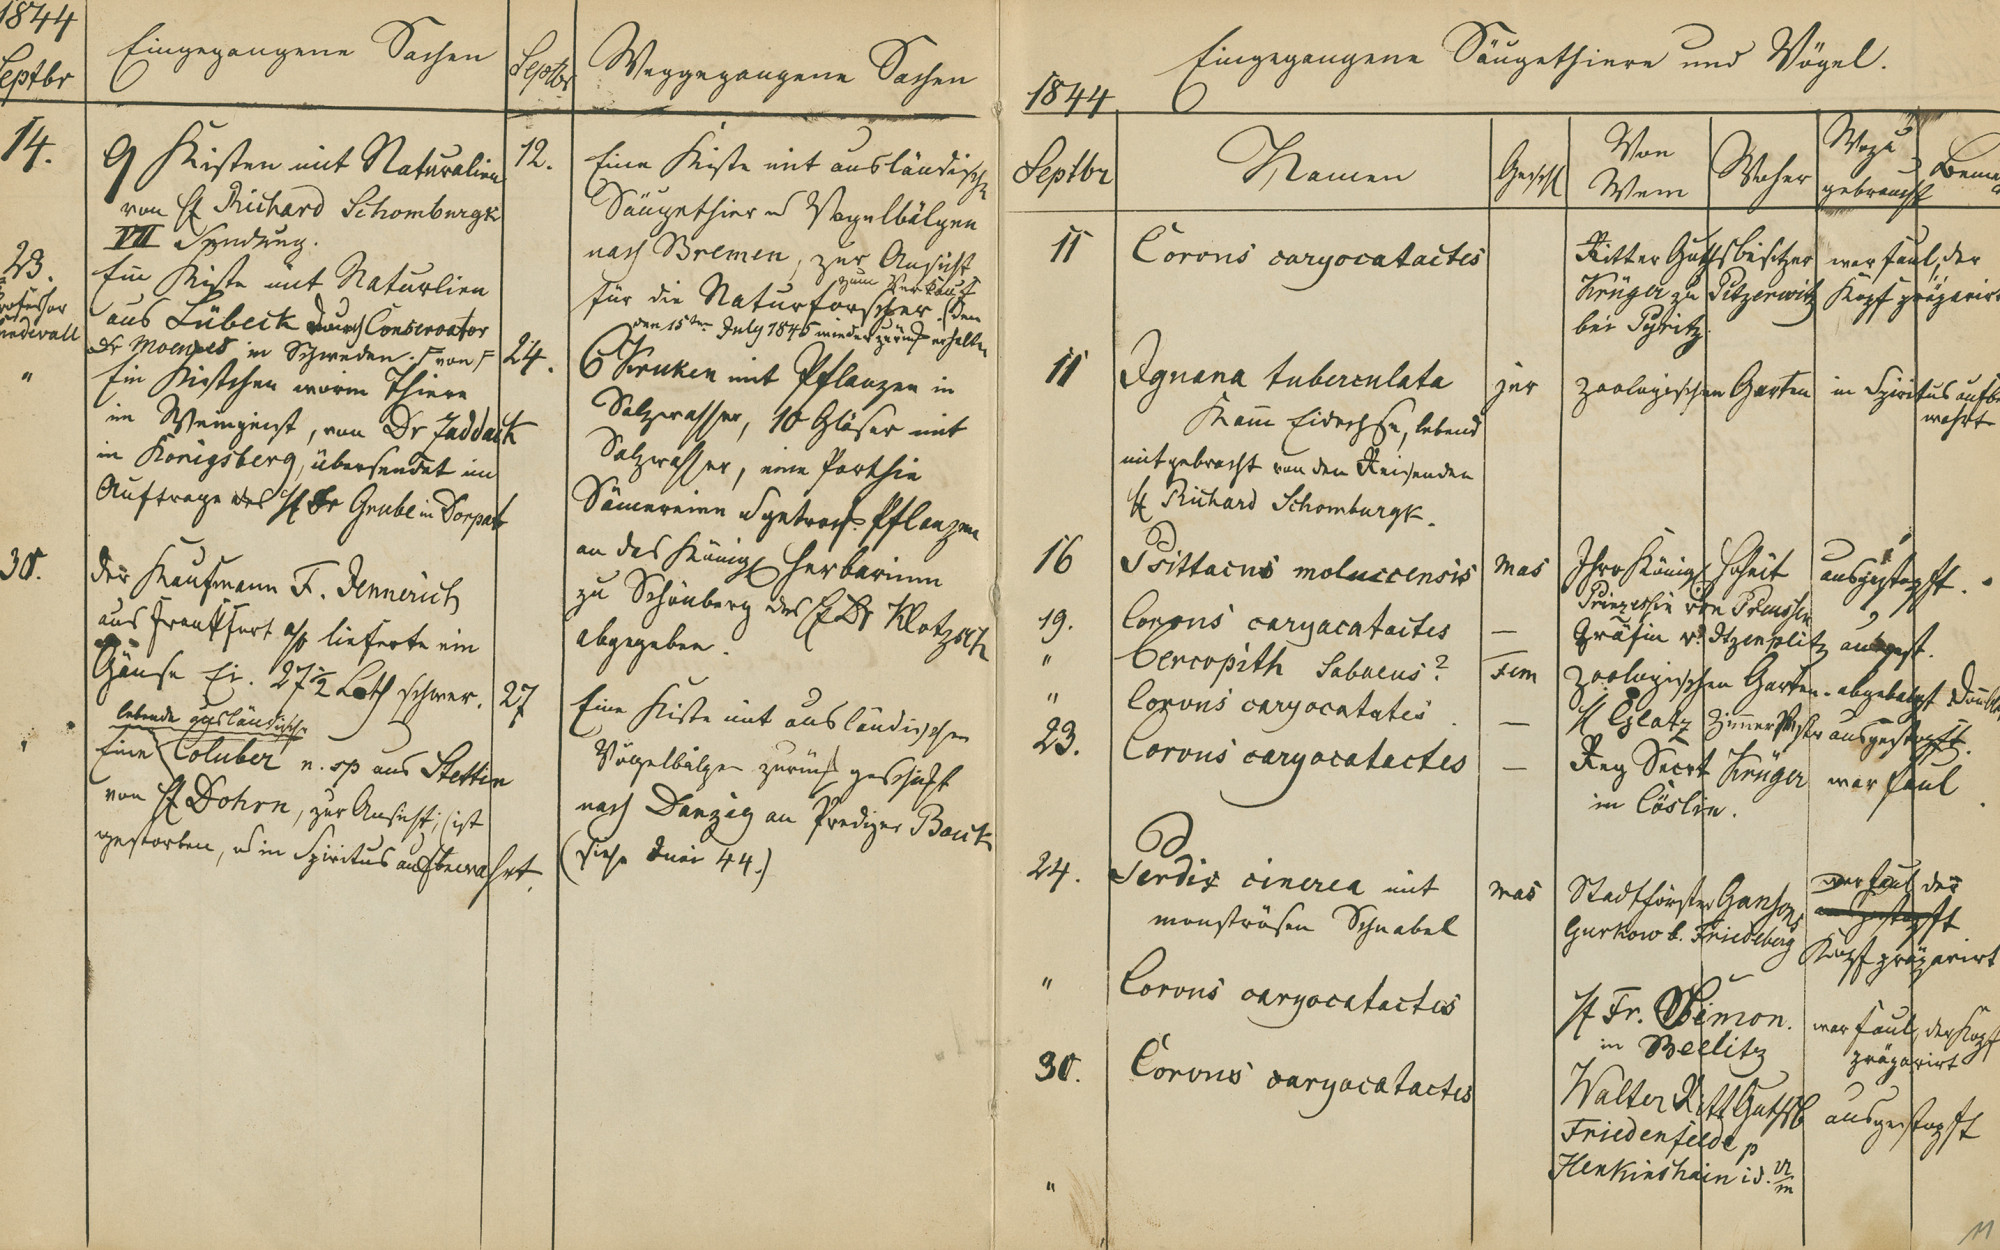 1844
Septbr
Eingegangene Sachen
14.
9 Kisten mit Naturalien
von H Richard Schomburgk
VII Sendung.
23.
Professor
Ein Kiste mit Naturlien
aus Lübeck durch Conservator
Dr in Schweden. von
"
Ein Kistchen worin Thiere
in Weingeist, von Dr Zaddach
in Königsberg, übersendet im
Auftrage des H Dr Grube in Dorpat
30.
der Kaufmann F. Jennerich
aus Frankfurt a/o lieferte ein
Gänse Ei. 27 1/2 Loth schwer.
lebende ausländische
Eine Coluber n. sp aus Stettin
von H Dohrn, zur Ansicht; (ist
gestorben, u in Spiritus aufbewahrt.
Septbr
Weggegangene Sachen
12.
Eine Kiste mit ausländische
Säugethier u Vogelbälgen
nach Bremen, zur Ansicht
zum Verkauf
für die Naturforscher. (den
den 15ten July 1845 wieder zurück erhalten
24.
6 Kruken mit Pflanzen in
Salzwasser, 10 Gläser mit
Salzwasser, eine Parthie
Sämereien u getrock. Pflanzen
an das Königl Herbarium
zu Schönberg des H Dr Klotzsch
abgegeben.
27
Eine Kiste mit ausländischen
Vögelbälgen zurück geschickt
nach Danzig an Prediger Bock
(siehe Juni 44.)
Eingegangene Säugethiere und Vögel.
1844
Septbr
Namen
Geschl
Von
Wem
Woher
Wozu
gebraucht
Beme
11
Corvus caryocatactes
Ritter Guthsbesitzer
Krüger zu Pitzerwitz
bei Pyritz.
war faul, der
Kopf präparirt
11
Iguana tuberculata
Kam̄ Eidechse, lebend
mitgebracht von den Reisenden
H Richard Schomburgk.
jun
zoologischen Garten
in Spiritus aufbe
wahrt
16
Psittacus moluccensis
mas
Ihro Königl Hoheit
Prinzessin von Preussen
ausgestopft.
19.
Corvus caryacatactes
—
Gräfin v. Itzenplitz
ausgest.
"
Cercopith Sabaeus?
Fem
zoologischen Garten.
abgebalgt
"
Corvus caryocatates
—
H Glatz Zimmer Mstr
ausgestopft.
23.
Corvus caryocatactes
—
Reg Secrt Krüger
in Cöslin.
war faul
24.
Perdix cinerea mit
monströsen Schnabel
mas
Stadtförster
Gurkow b. Friedeberg
war faul der
Kopf präparirt
"
Corvus caryocatactes
H Fr. Simon.
in Beelitz
war faul, der Kopf
präparirt
30.
Corvus caryocatactes
Walter Ritt Guthsb
Friedenfelde p
Henkinshain i d. U/m
ausgestopft
"
11